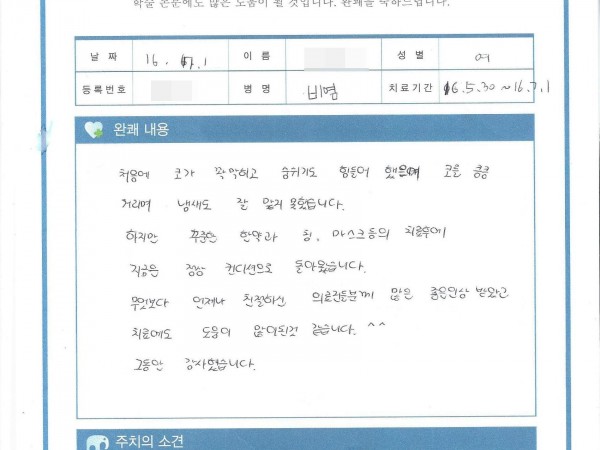 학술 논문에도 많은 도움이 될 것입니다. 완쾌를 축하드립니다.
날 짜 16. 7. 1 이 름 성 별 여
등록번호 병 명 비염 치료기간 16.5.30 ~ 16.7.1
완쾌 내용
처음에 코가 꽉 막히고 숨쉬기도 힘들어 했으며 코를 킁킁
거리며 냄새도 잘 맡지 못했습니다.
하지만 꾸준한 한약과 침, 마스크등의 치료후에
지금은 정상 컨디션으로 돌아왔습니다.
무엇보다 언제나 친절하신 의료진분께 많은 좋은인상 받았고
치료에도 도움이 많이된것 같습니다. ^^
그동안 감사했습니다.
주치의 소견